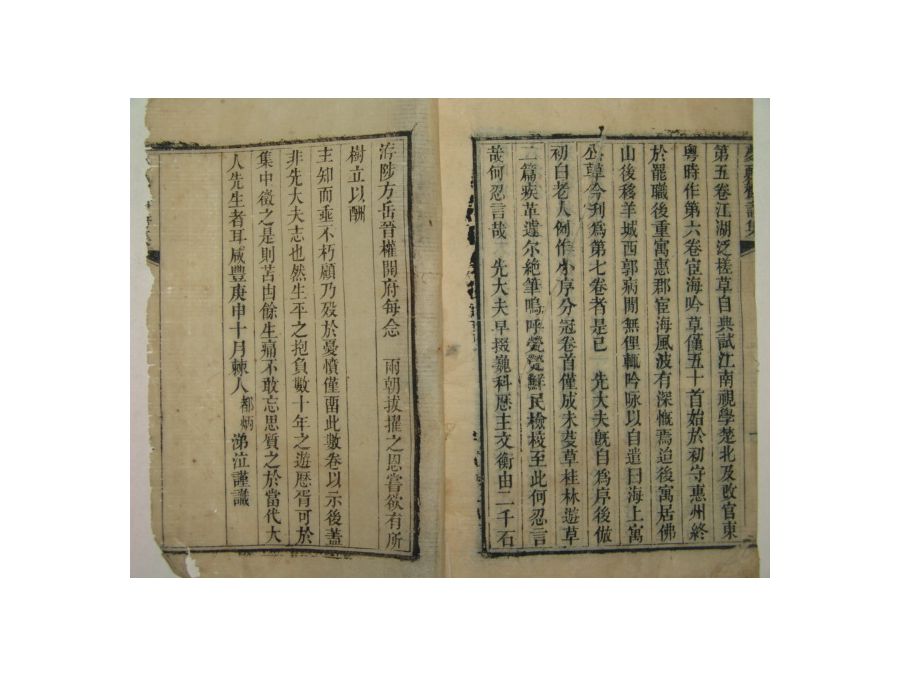 第五卷江湖泛槎草自典試江南視學楚北及改官東
粤時作第六卷宦海吟草僅五十首始於初守惠州終
於罷職後重寓惠郡宦海風波有深慨焉迨後寓居佛
山後移羊城西郭病閒無俚輒吟咏以自遣曰海上寓
公草今刋爲第七卷者是已　先大夫旣自爲序後倣
初白老人例作小序分冠卷首僅成未芟草桂林遊草
二篇疾革遽尔絶筆嗚呼煢煢鮮民檢校至此何忍言
哉何忍言哉　先大夫早掇巍科歴主文衡由二千石
洊陟方岳晉權開府每念　兩朝拔擢之恩嘗欲有所
樹立以酬
主知而垂不朽顧乃殁於憂憤僅畱此數卷以示後蓋
非先大夫志也然生平之抱負數十年之遊歴胥可於
集中徵之是則苫甴餘生痛不敢忘思質之於當代大
人先生者耳咸豐庚申十月棘人都炳涕泣謹識